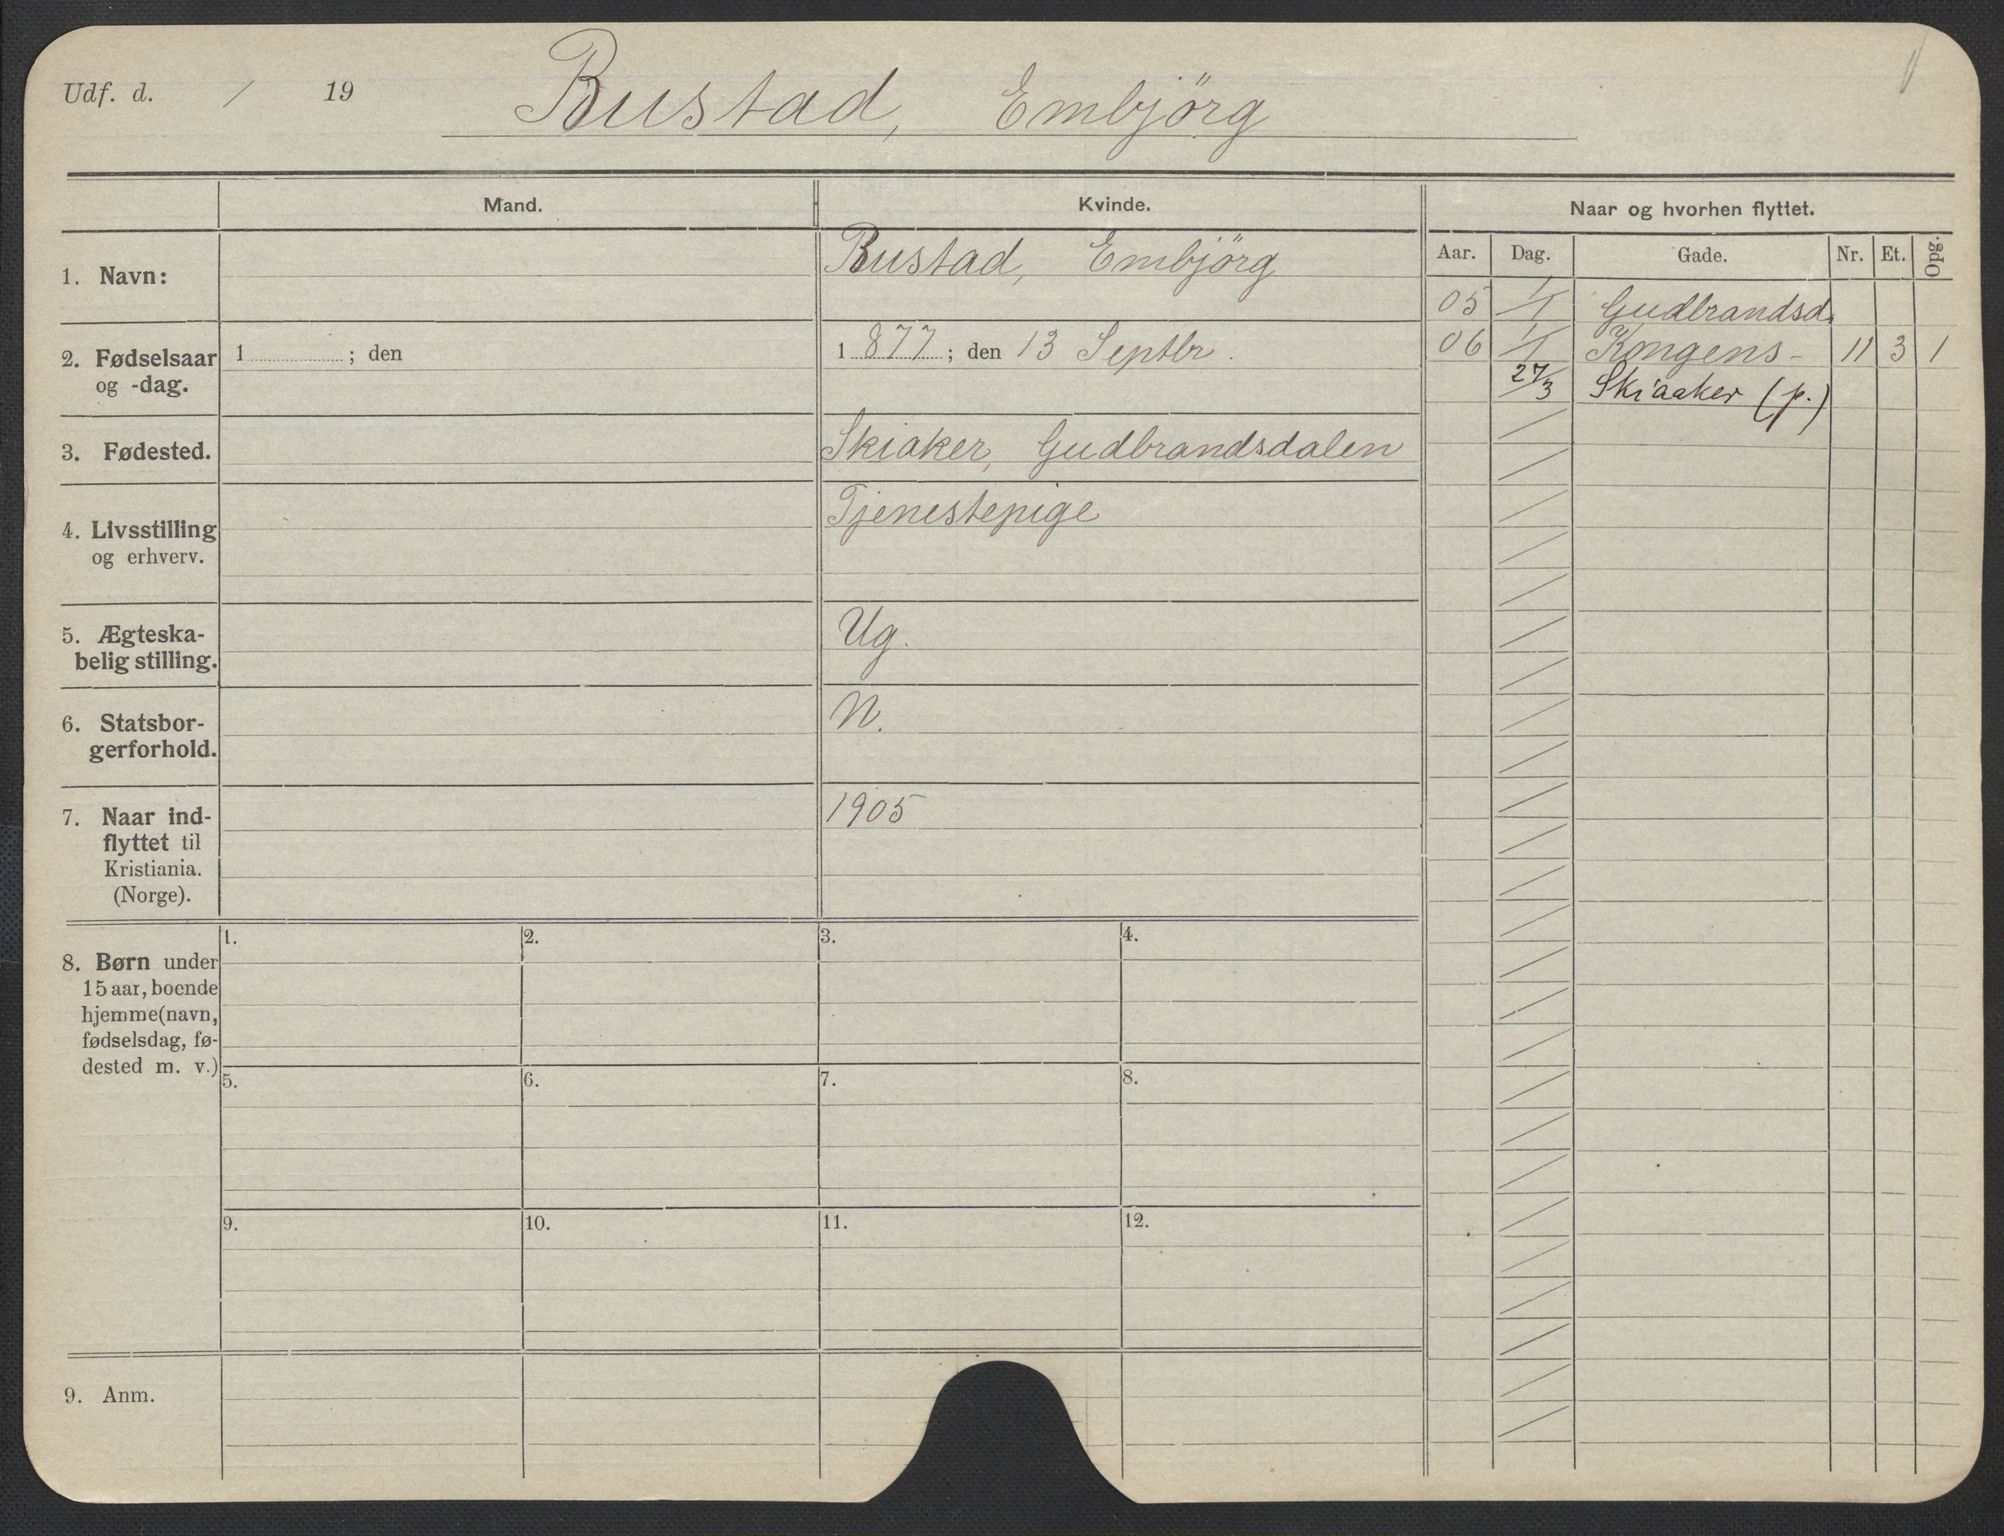 Udf. d. / 19 Bustad, Embjörg
Mand. Kvinde. Naar og hvorhen flyttet.
Aar. Dag. Gade. Nr. Et. Opg.
1. Navn: Bustad, Embjörg
05 1/1 Gudbrandsd.
2. Fødselsaar og -dag. 1 ; den 1 877 ; den 13 Septbr.
06 1/1 Kongens- 11 3 1
27/3 Skiaaker (p.)
3. Fødested. Skiaker, Gudbrandsdalen
4. Livsstilling og erhverv. Tjenestepige
5. Ægteska-
belig stilling. Ug.
6. Statsbor-
gerforhold. N.
7. Naar ind- 1905
flyttet til
Kristiania.
(Norge).
8. Børn under
15 aar, boende
hjemme (navn,
fødselsdag, fø-
dested m. v.)
1. 2. 3. 4.
5. 6. 7. 8.
9. 10. 11. 12.
9. Anm.